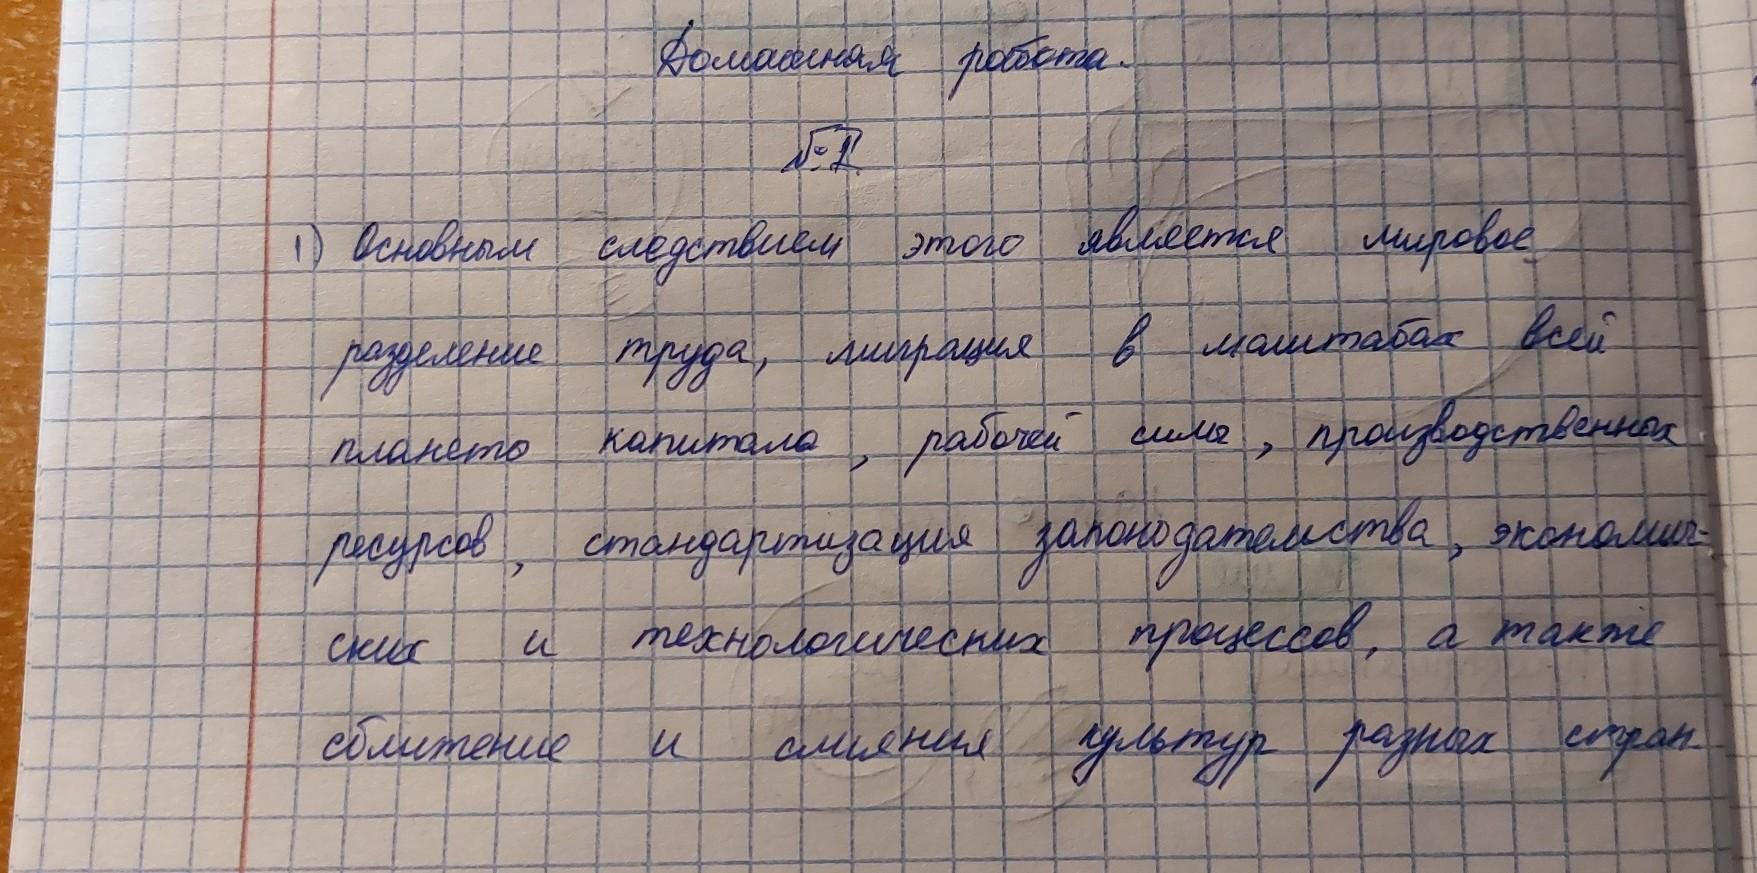 Домашняя работа.
№1
1) Основным следствием этого является мировое
разделение труда, миграция в масштабах всей
планеты капитала, рабочей силы, производственных
ресурсов, стандартизация законодательства, экономич-
ских и технологических процессов, а также
сближение и слияния культур разных стран